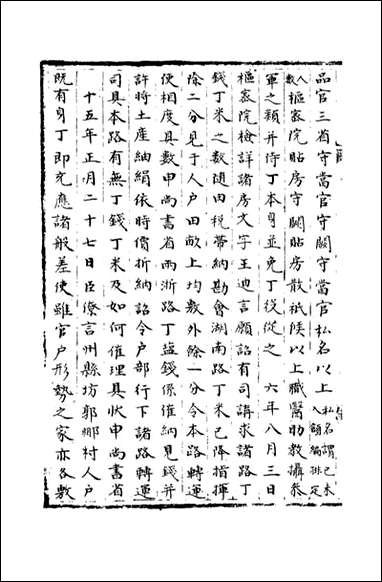 品官三省守當官守闕守當官私名以上私名謂已未入額編排定
人數樞密院貼房守闕貼房散祗候以上職醫助教攝叅
軍之類并侍丁本身並免丁役從之　六年八月三日
樞密院檢詳諸房文字王迪言願詔有司講求諸路丁
錢丁米之數隨田稅帶納勘會湖南路丁米已降指揮
除二分見于人戶田畝上均敷外餘一分令本路轉運
使相度具數申尚書省兩浙路丁鹽錢係催納見錢并
許將土產紬絹依時價折納詔令戶部行下諸路轉運
司具本路有無丁錢丁米及如何催理具狀申尚書省
十五年正月二十七日臣僚言州縣坊郭鄉村人戶
既有身丁即充應諸般差使雖官戶形勢之家亦各敷